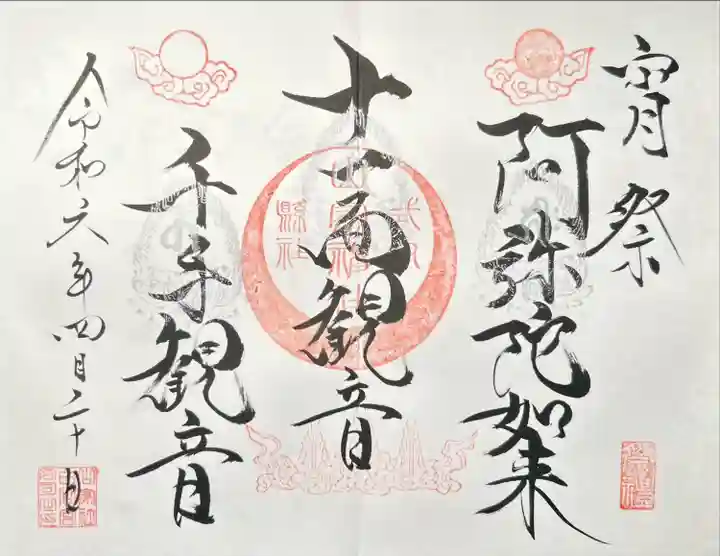 宵月祭
阿弥陀如来
十一面観音
縣社
千手観音
令和六年四月二十日